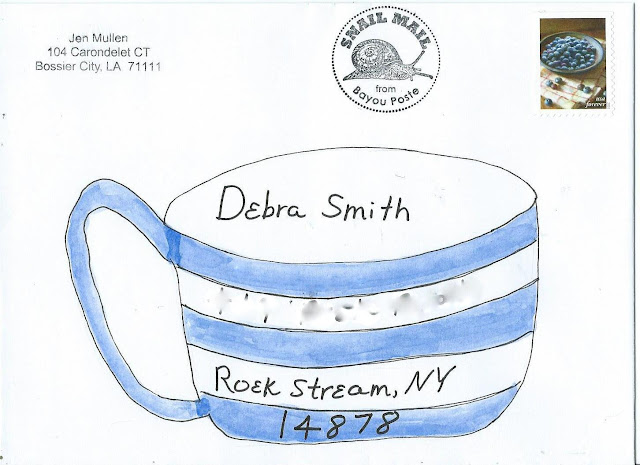 Jen Mullen
104 Carondelet CT
Bossier City, LA 71111
SNAIL MAIL
from
Bayou Poste
USA
forever
Debra Smith
Rock Stream, NY
14878